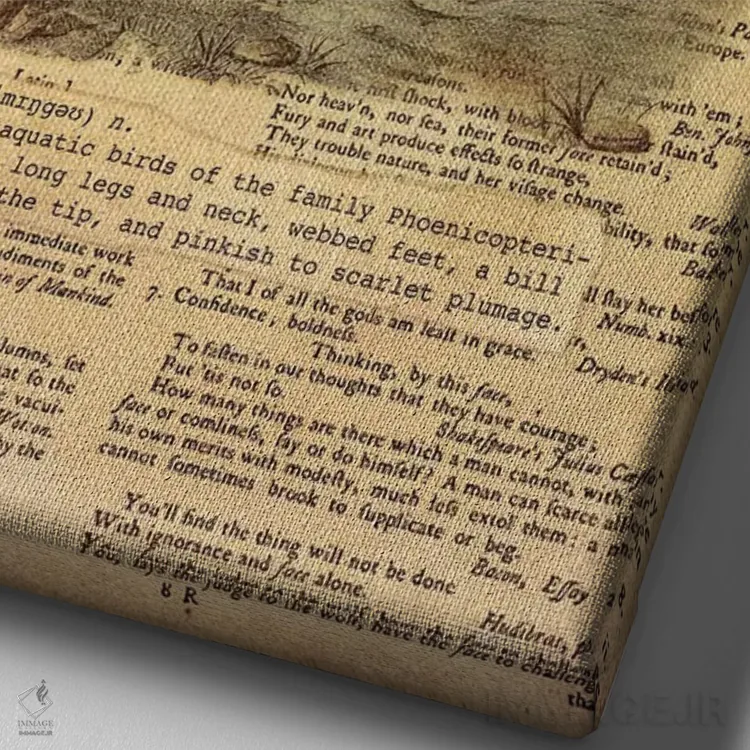 Nor heav'n, nor sea, their former face retain'd;
Fury and art produce effects so strange,
They trouble nature, and her visage change.
with 'em;
stain'd,
Europe.
n.
aquatic birds of the family Phoenicopteri-
long legs and neck, webbed feet, a bill
the tip, and pinkish to scarlet plumage.
immediate work
diments of the
n of Mankind.
That I of all the gods am least in grace.
7. Confidence; boldness.
Thinking, by this face,
To fasten in our thoughts that they have courage;
But 'tis not so.
Shakespeare's Julius Cæsar.
How many things are there which a man cannot, with
face or comliness, say or do himself? A man can scarce alledge
his own merits with modesty, much less extol them: a man
cannot sometimes brook to supplicate or beg.
Bacon, Essay
You'll find the thing will not be done
With ignorance and face alone.
Hudibras, p.
You, says the judge to the wolf, have the face to challenge
8 R
tha
ll stay her before
Numb. xix.
Dryden's
bility, that som
lumns, set
at so the
vacui-
Wotton.
by the
IMMAGE
IMMAGE.IR